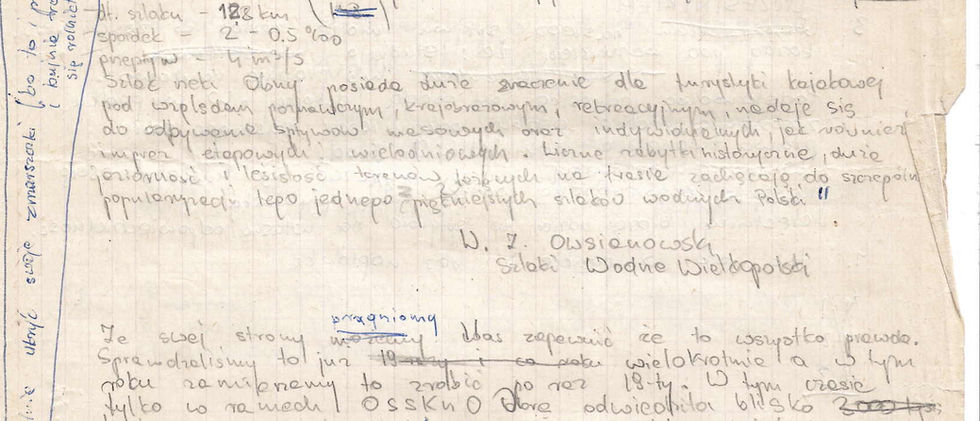 dł. szlaku - 128 km
spadek - 2 - 0.5 ‰
przepływ - 4 m³/s
Szlak rzeki Obry posiada duże znaczenie dla turystyki kajakowej
pod względem poznawczym, krajobrazowym, rekreacyjnym, nadaje się
do odbywania spływów masowych oraz indywidualnych, jak również
imprez etapowych wielodniowych. Liczne zabytki historyczne, duża
jeziorność i lesistość terenów leżących na trasie zachęcają do szczególn
popularyzacji tego jednego z piękniejszych szlaków wodnych Polski"
W. J. Owsianowski
Szlaki Wodne Wielkopolski
pragniemy
Ze swej strony możemy Was zapewnić że to wszystko prawda.
Sprawdzaliśmy to już 19-ty i co roku wielokrotnie a w tym
roku zamierzamy to zrobić po raz 19-ty. W tym czasie
tylko w ramach OSSKnO Obrę odwiedziła blisko
ubyć swoje zmarszczki (bo to
i bujnie
się rolnict